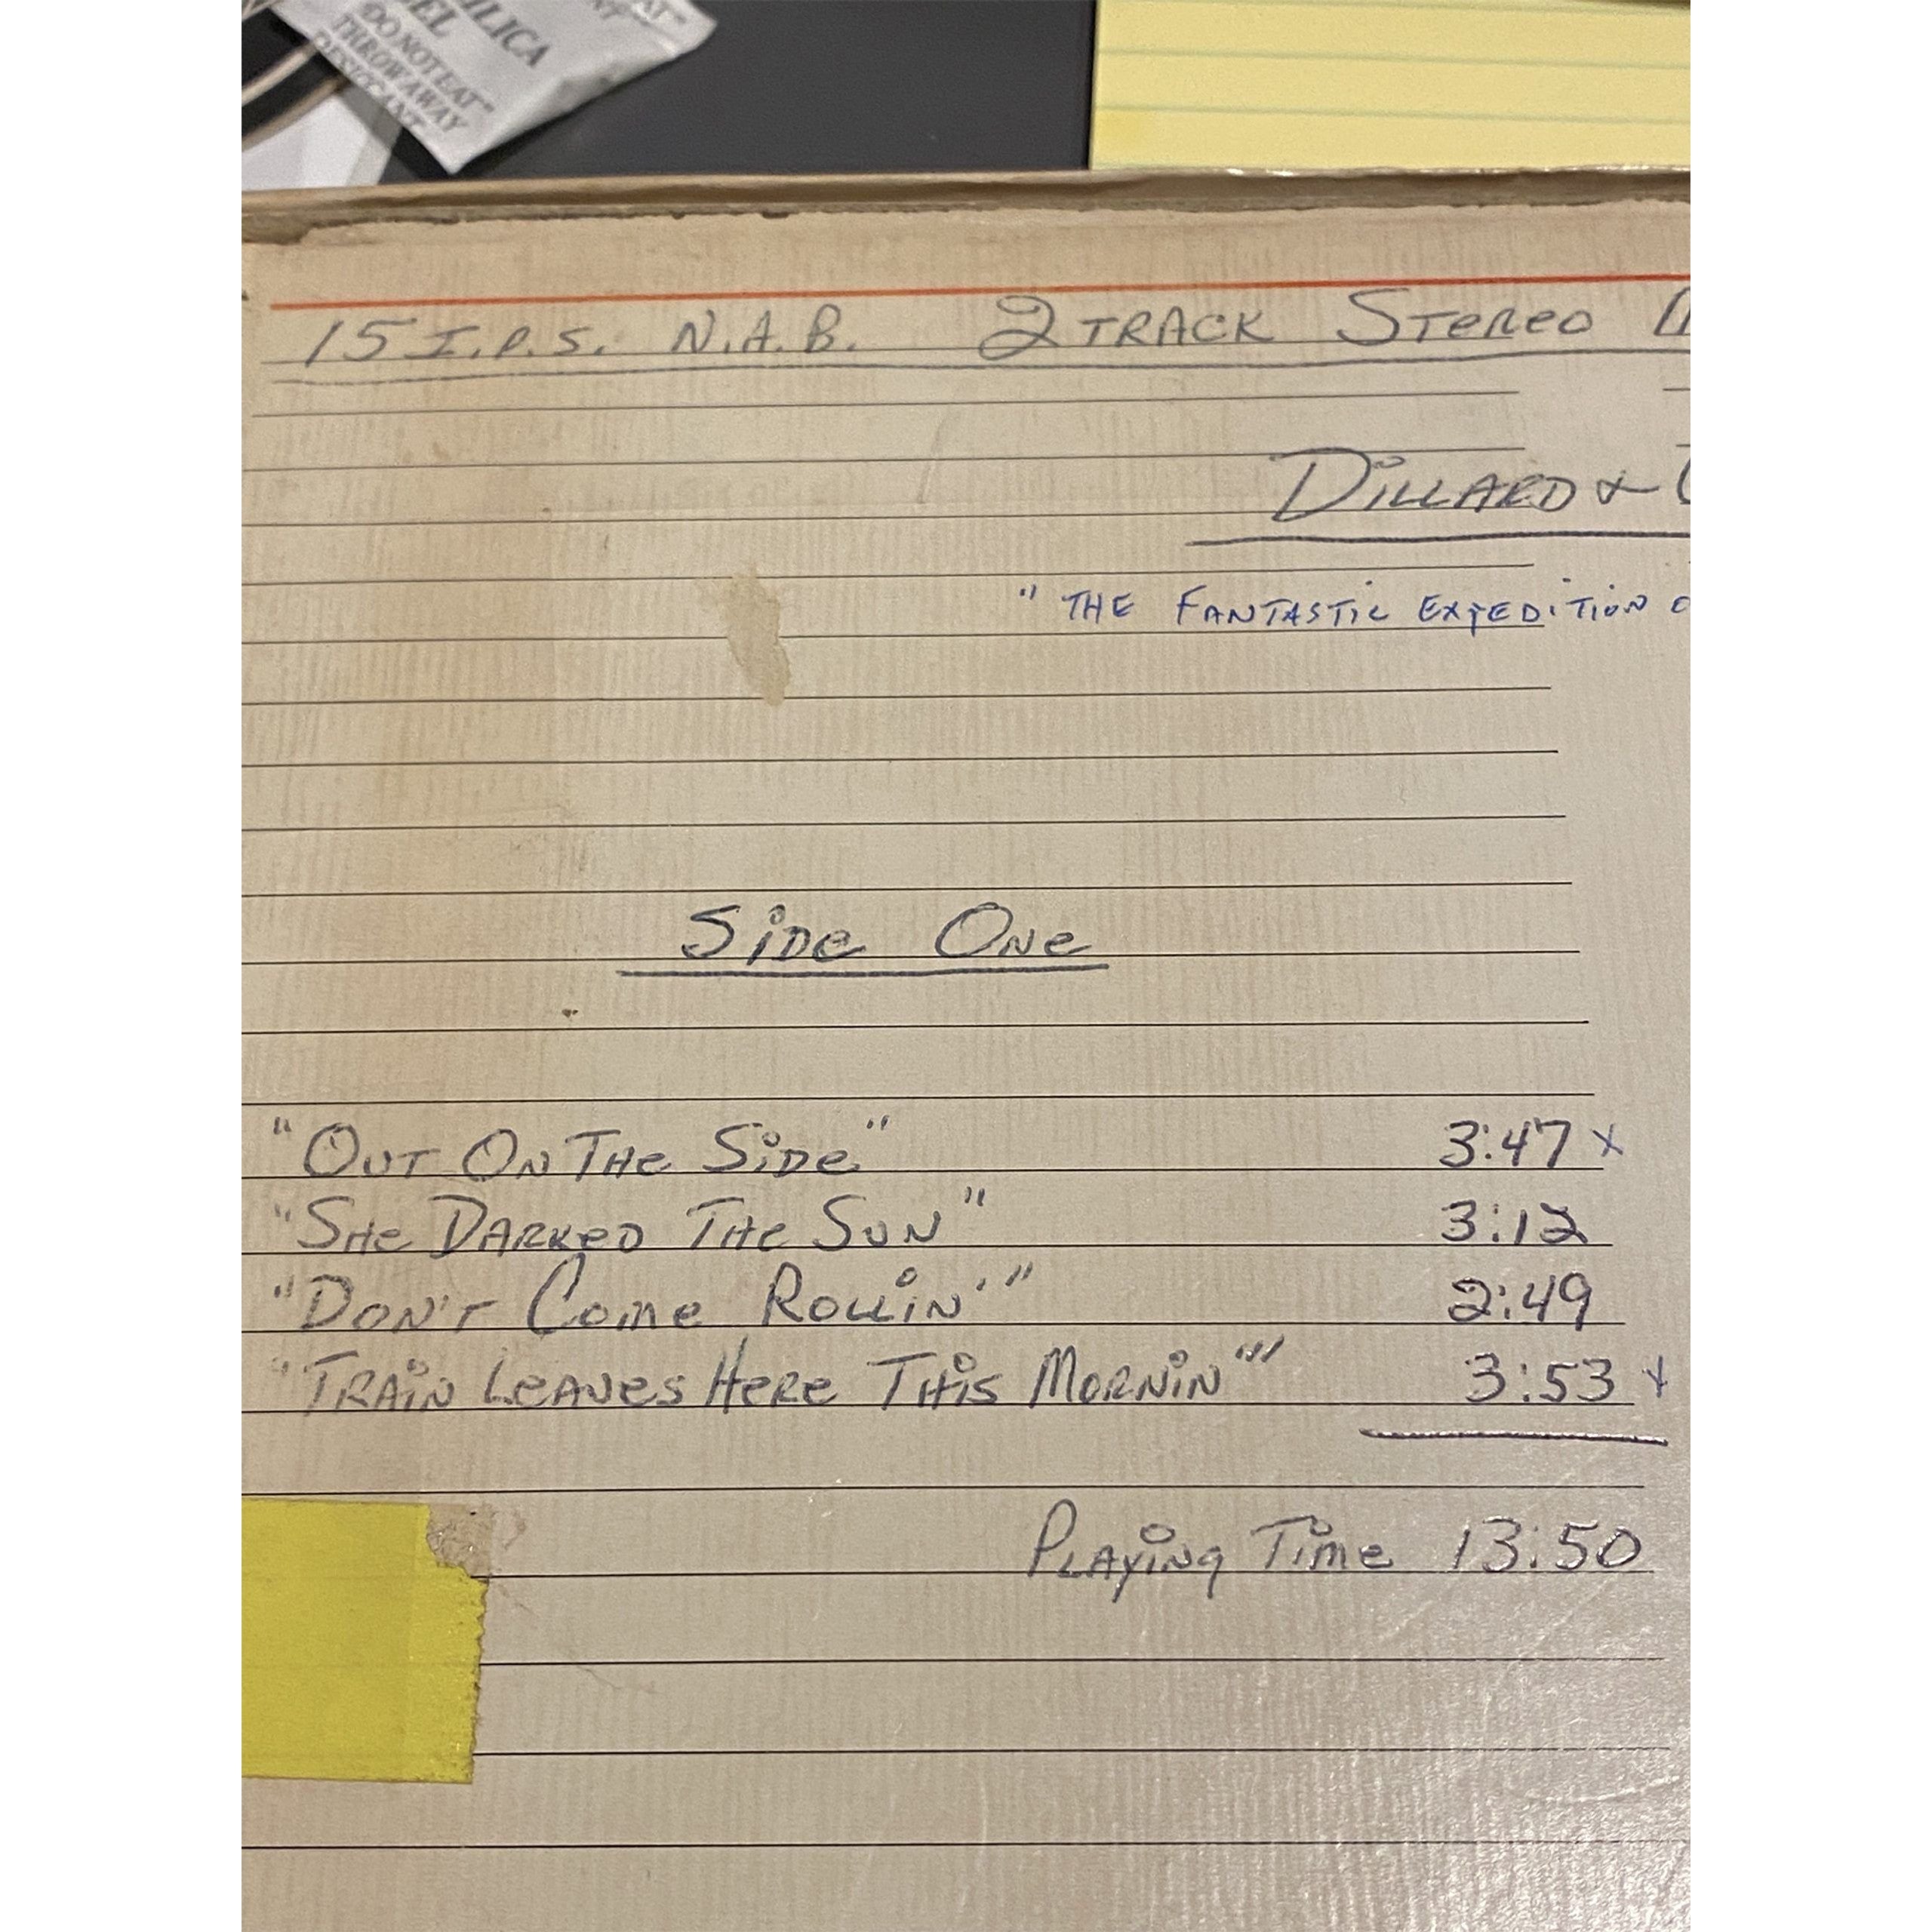 SILICA
DO NOT EAT"
THROW AWAY
DESICCANT
15 I.P.S. N.A.B. 2 TRACK STEREO
DILLARD &
"THE FANTASTIC EXPEDITION
SIDE ONE
"OUT ON THE SIDE" 3:47 x
"SHE DARKED THE SUN" 3:12
"DON'T COME ROLLIN'" 2:49
"TRAIN LEAVES HERE THIS MORNIN'" 3:53 x
PLAYING TIME 13:50